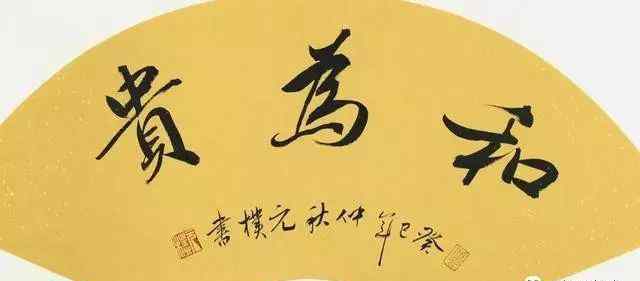 和為貴
癸巳年仲秋元樸書